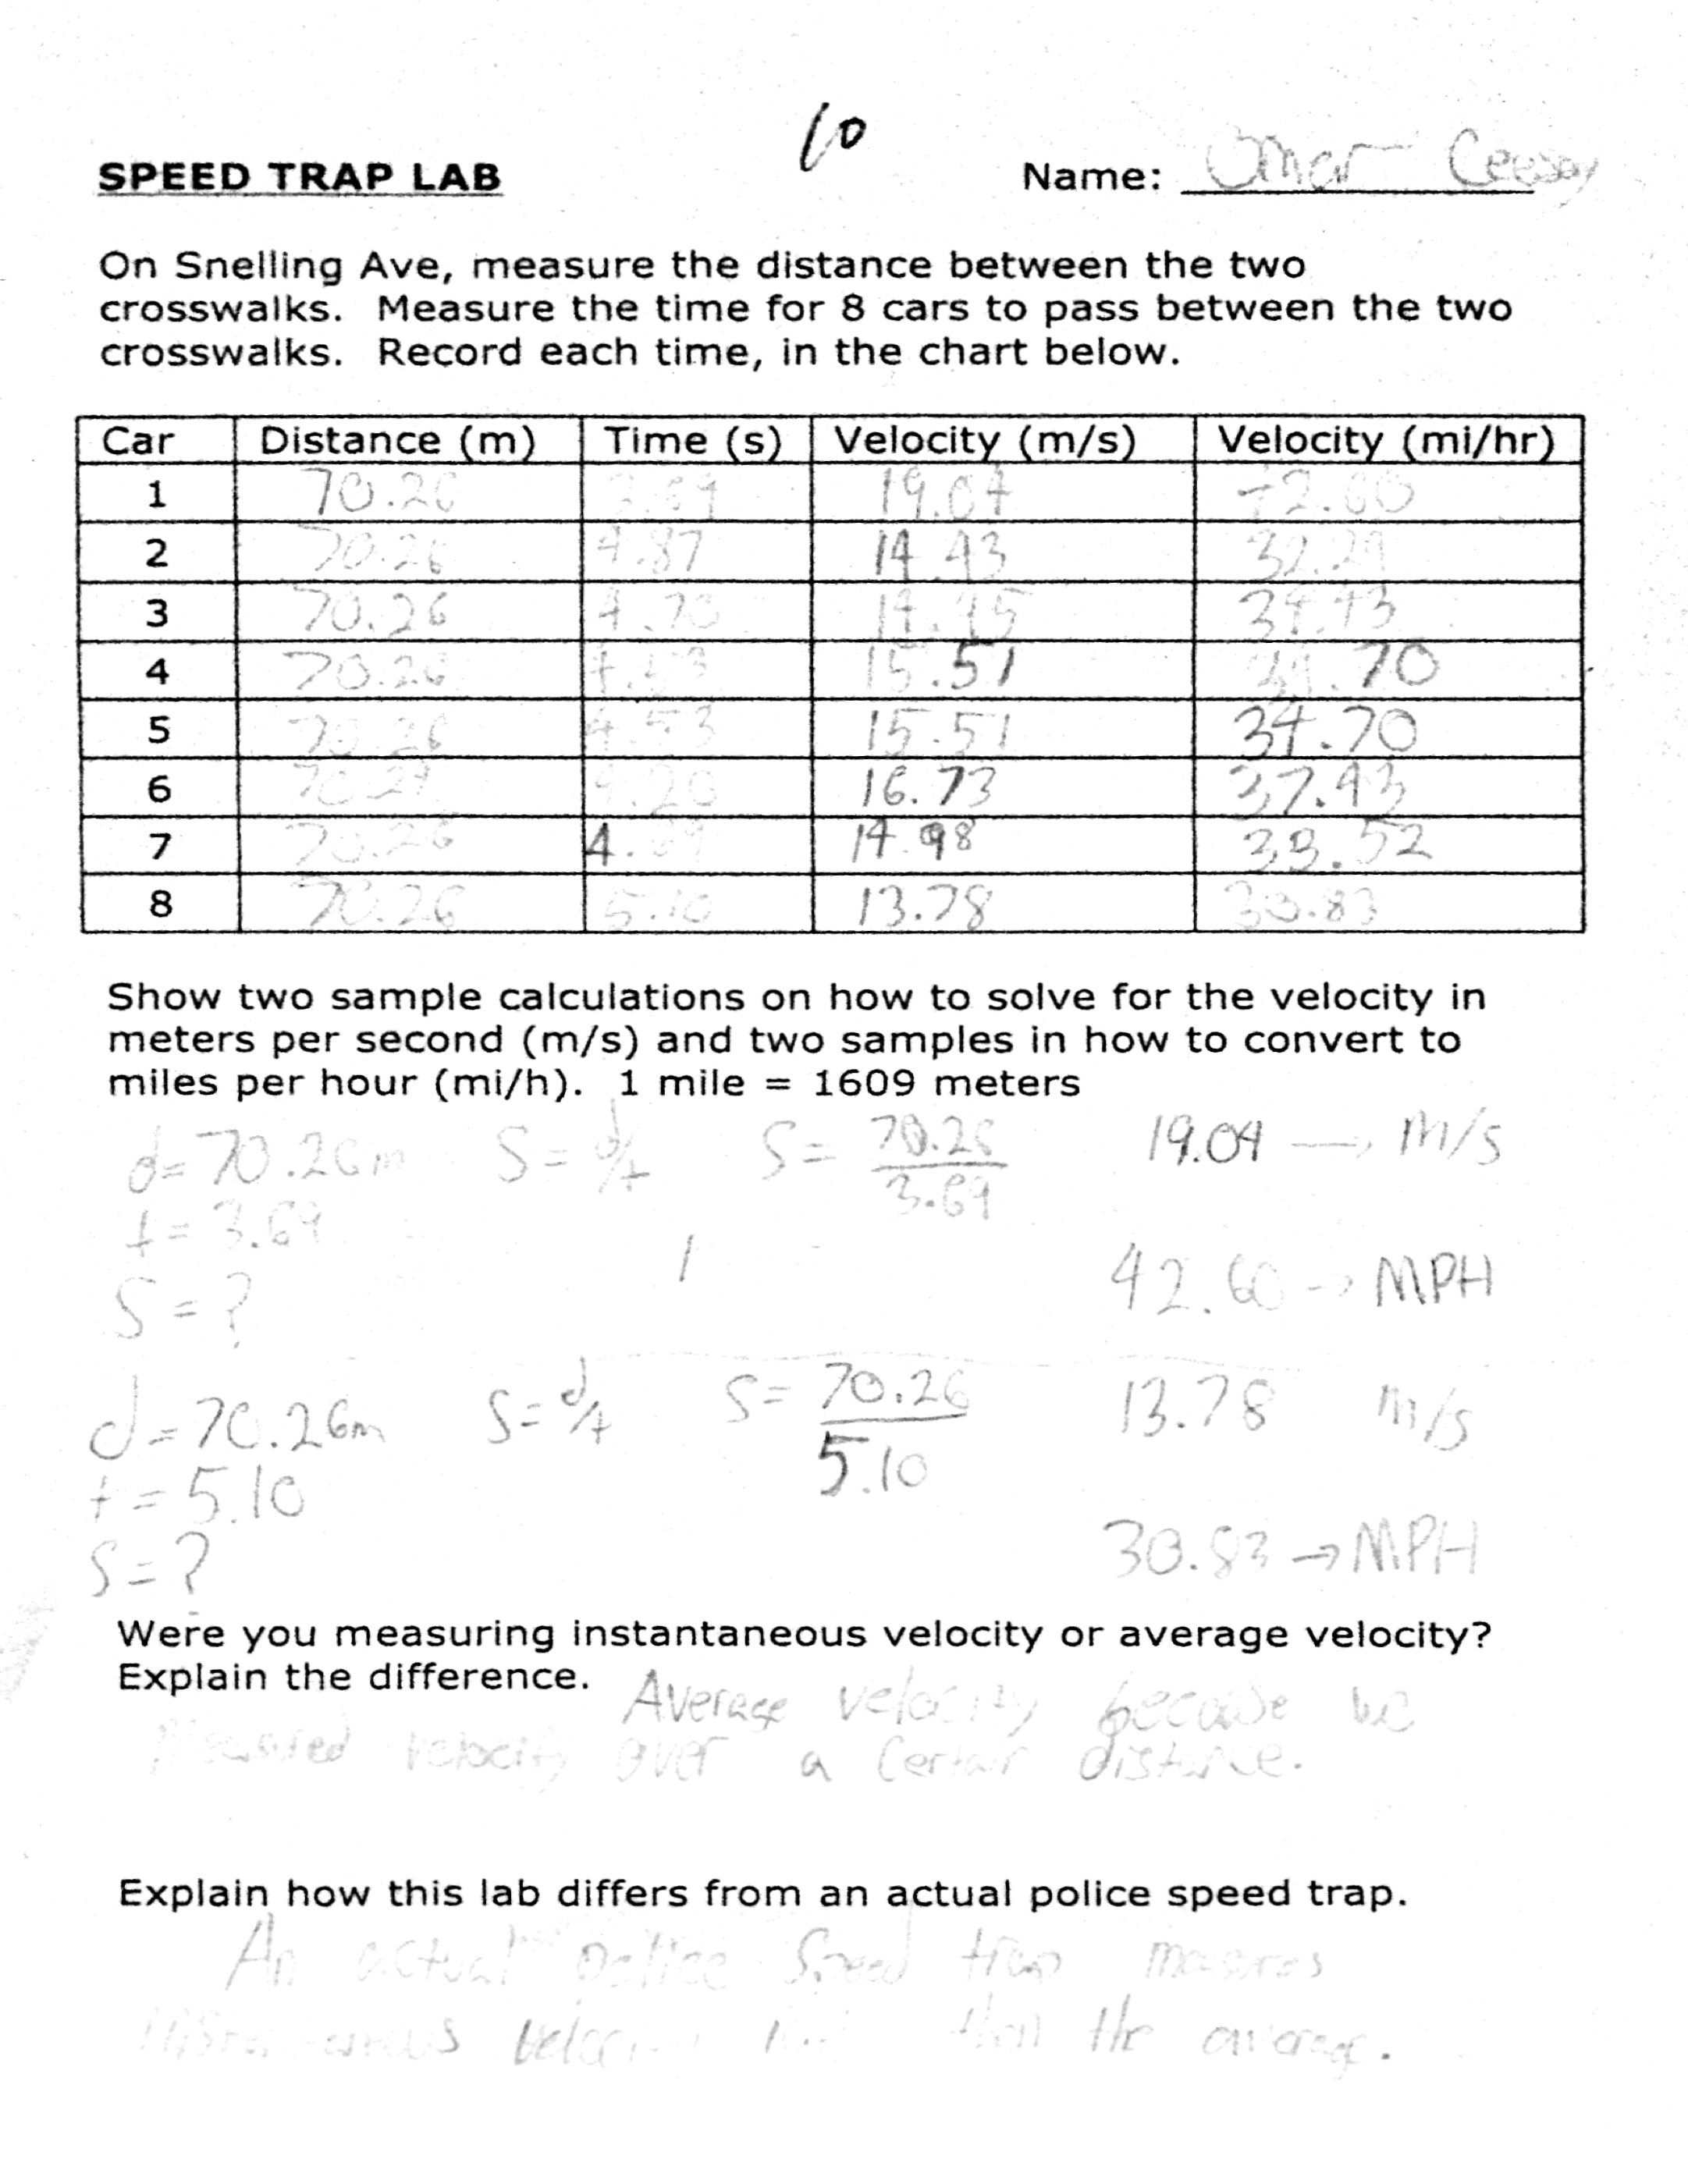 10
SPEED TRAP LAB Name: Omar Ceesay
On Snelling Ave, measure the distance between the two
crosswalks. Measure the time for 8 cars to pass between the two
crosswalks. Record each time, in the chart below.
Car Distance (m) Time (s) Velocity (m/s) Velocity (mi/hr)
1 70.26 3.69 19.04 42.60
2 70.26 4.87 14.43 32.29
3 70.26 4.70 14.95
4 70.26 15.51 34.70
5 70.26 4.53 15.51 34.70
6 4.20 16.73 37.43
7 70.26 14.98 33.52
8 70.26 5.10 13.78 30.83
Show two sample calculations on how to solve for the velocity in
meters per second (m/s) and two samples in how to convert to
miles per hour (mi/h). 1 mile = 1609 meters
d= 70.26m S = d/t S = 70.26 19.04 → m/s
t = 3.69 3.69
S = ? 42.60 → MPH
d = 70.26m S = d/t S = 70.26 13.78 m/s
t = 5.10 5.10
S = ? 30.83 → MPH
Were you measuring instantaneous velocity or average velocity?
Explain the difference. Average velocity because we
Measured velocity over a Certain distance.
Explain how this lab differs from an actual police speed trap.
An actual police Speed trap measures
velocity than the average.